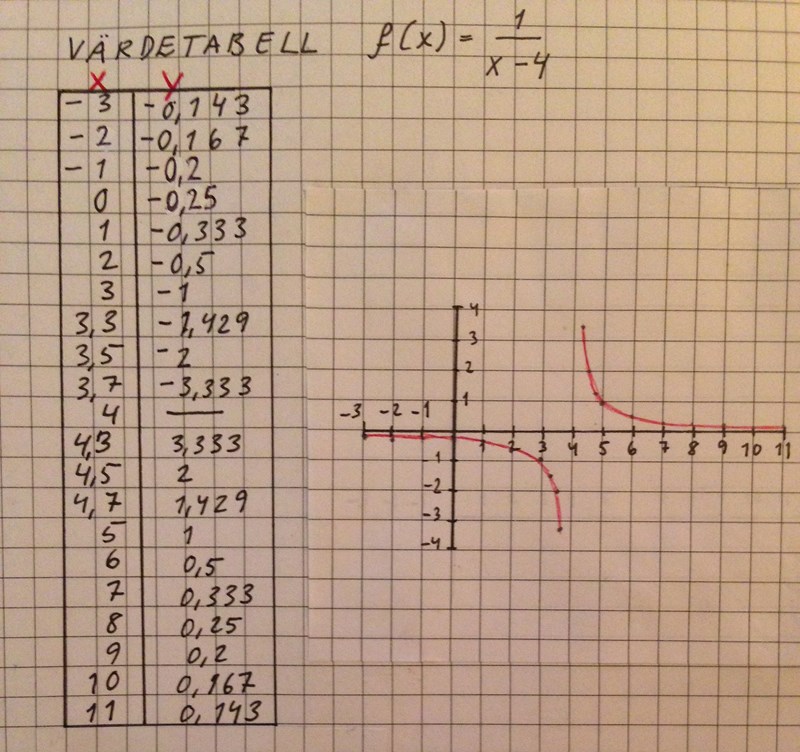 VÄRDETABELL f(x) = 1/(x-4)
x y
-3 -0,143
-2 -0,167
-1 -0,2
0 -0,25
1 -0,333
2 -0,5
3 -1
3,3 -1,429
3,5 -2
3,7 -3,333
4 —
4,3 3,333
4,5 2
4,7 1,429
5 1
6 0,5
7 0,333
8 0,25
9 0,2
10 0,167
11 0,143
4
3
2
1
-3 -2 -1
1 2 3 4 5 6 7 8 9 10 11
-1
-2
-3
-4